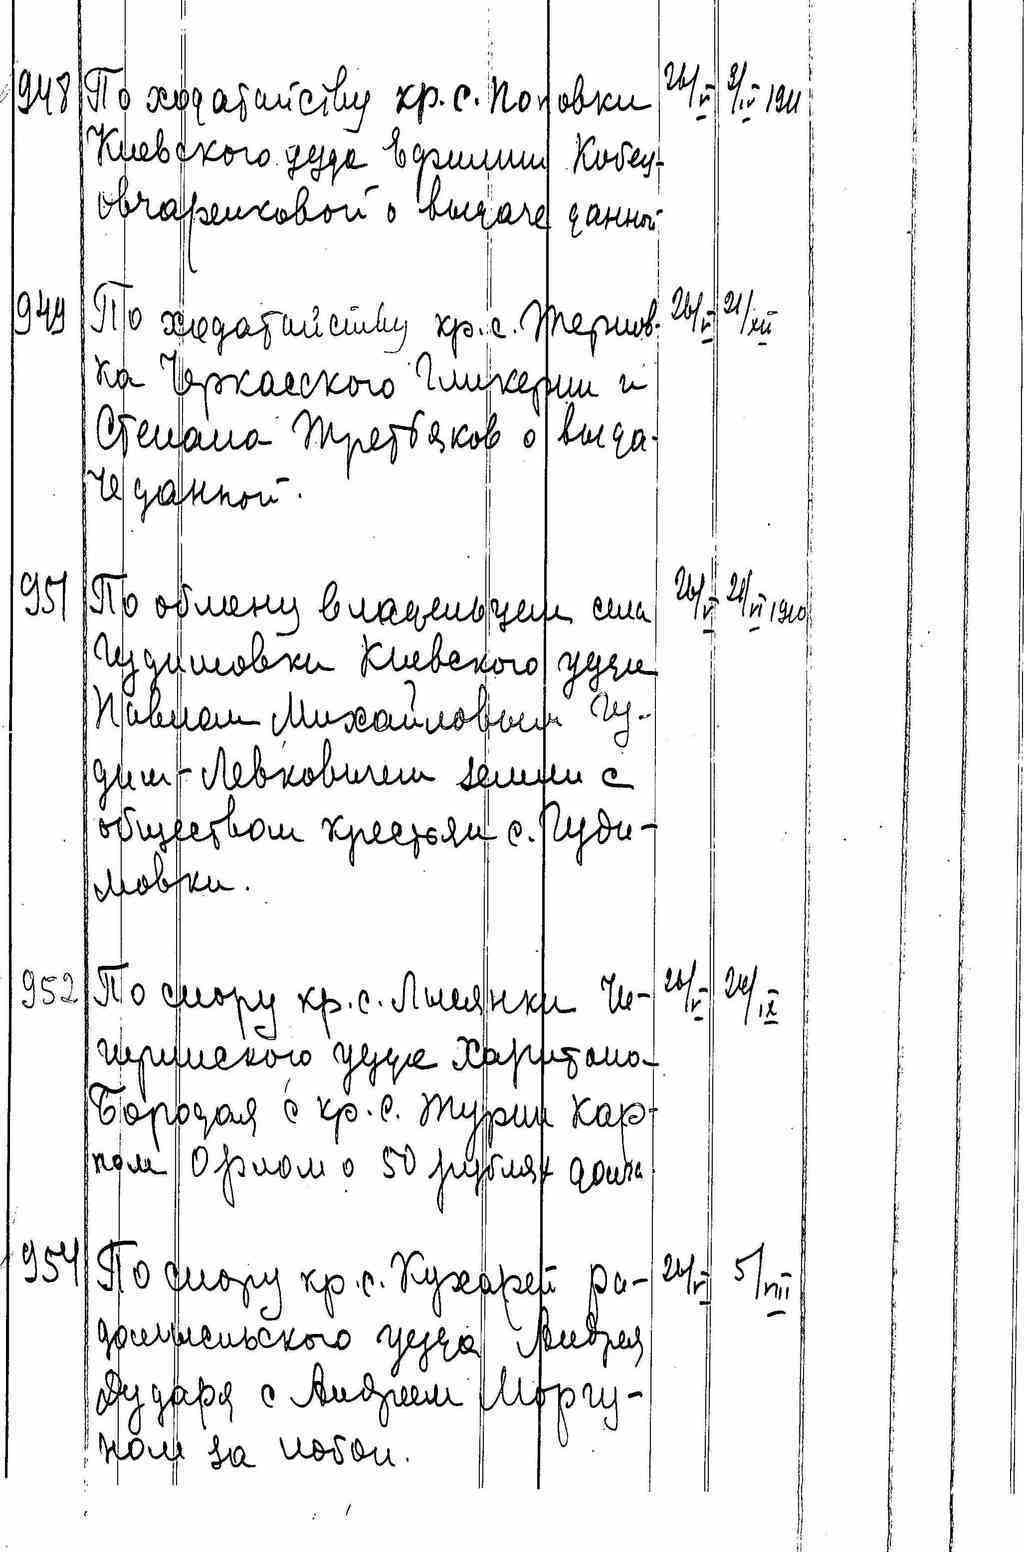 948 По ходатайству кр. с. Поповки 26/V 3/IV 1911
Киевского уезда Ефимии Кобец-
овчаренковой о выдаче данной
949 По ходатайству кр. с. Тернов- 26/V 21/XII
ка Черкасского Гликерии и
Степана Третьяков о выда-
че данной.
951 По обмену владельцем села 26/V 26/VI 1910
Гудимовки Киевского уезда
Павлом Михайловым Гу-
дим-Левковичем земли с
обществом крестьян с. Гуди-
мовки.
952 По спору кр. с. Лысянки Чи- 26/V 24/IX
гиринского уезда Харитона
Бородая с кр. с. Турии Кар-
пом Орлом о 50 рублях долга
954 По спору кр. с. Кухарей ра- 26/V 5/VIII
домысльского уезда Андрея
Дударя с Андреем Моргу-
ном за побои.